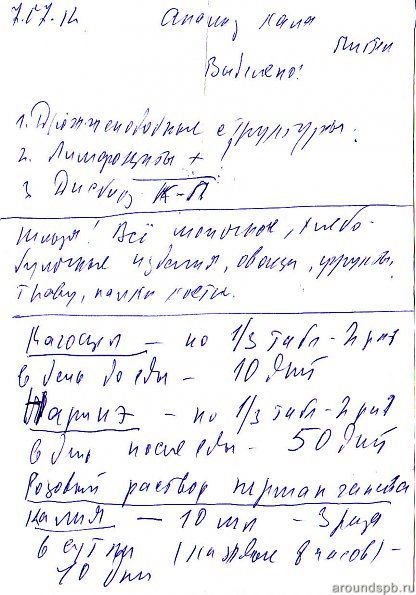 7.07.12 Анализ кала
Выявлено!
1. Дрожжеподобные структуры.
2. Лимфоциты +
3. Дисбиоз К-П
! Всё молочное, хлебо-
булочные изделия, овощи, фрукты,
траву, палки кости.
- по 1/3 табл - 2 раз
в день до еды - 10 дней
Наринэ - по 1/3 табл - 2 раз
в день после еды - 50 дней
Розовый раствор перманганата
калия - 10 мл - 3 раза
в сутки (каждые 8 часов) -
10 дней
aroundspb.ru